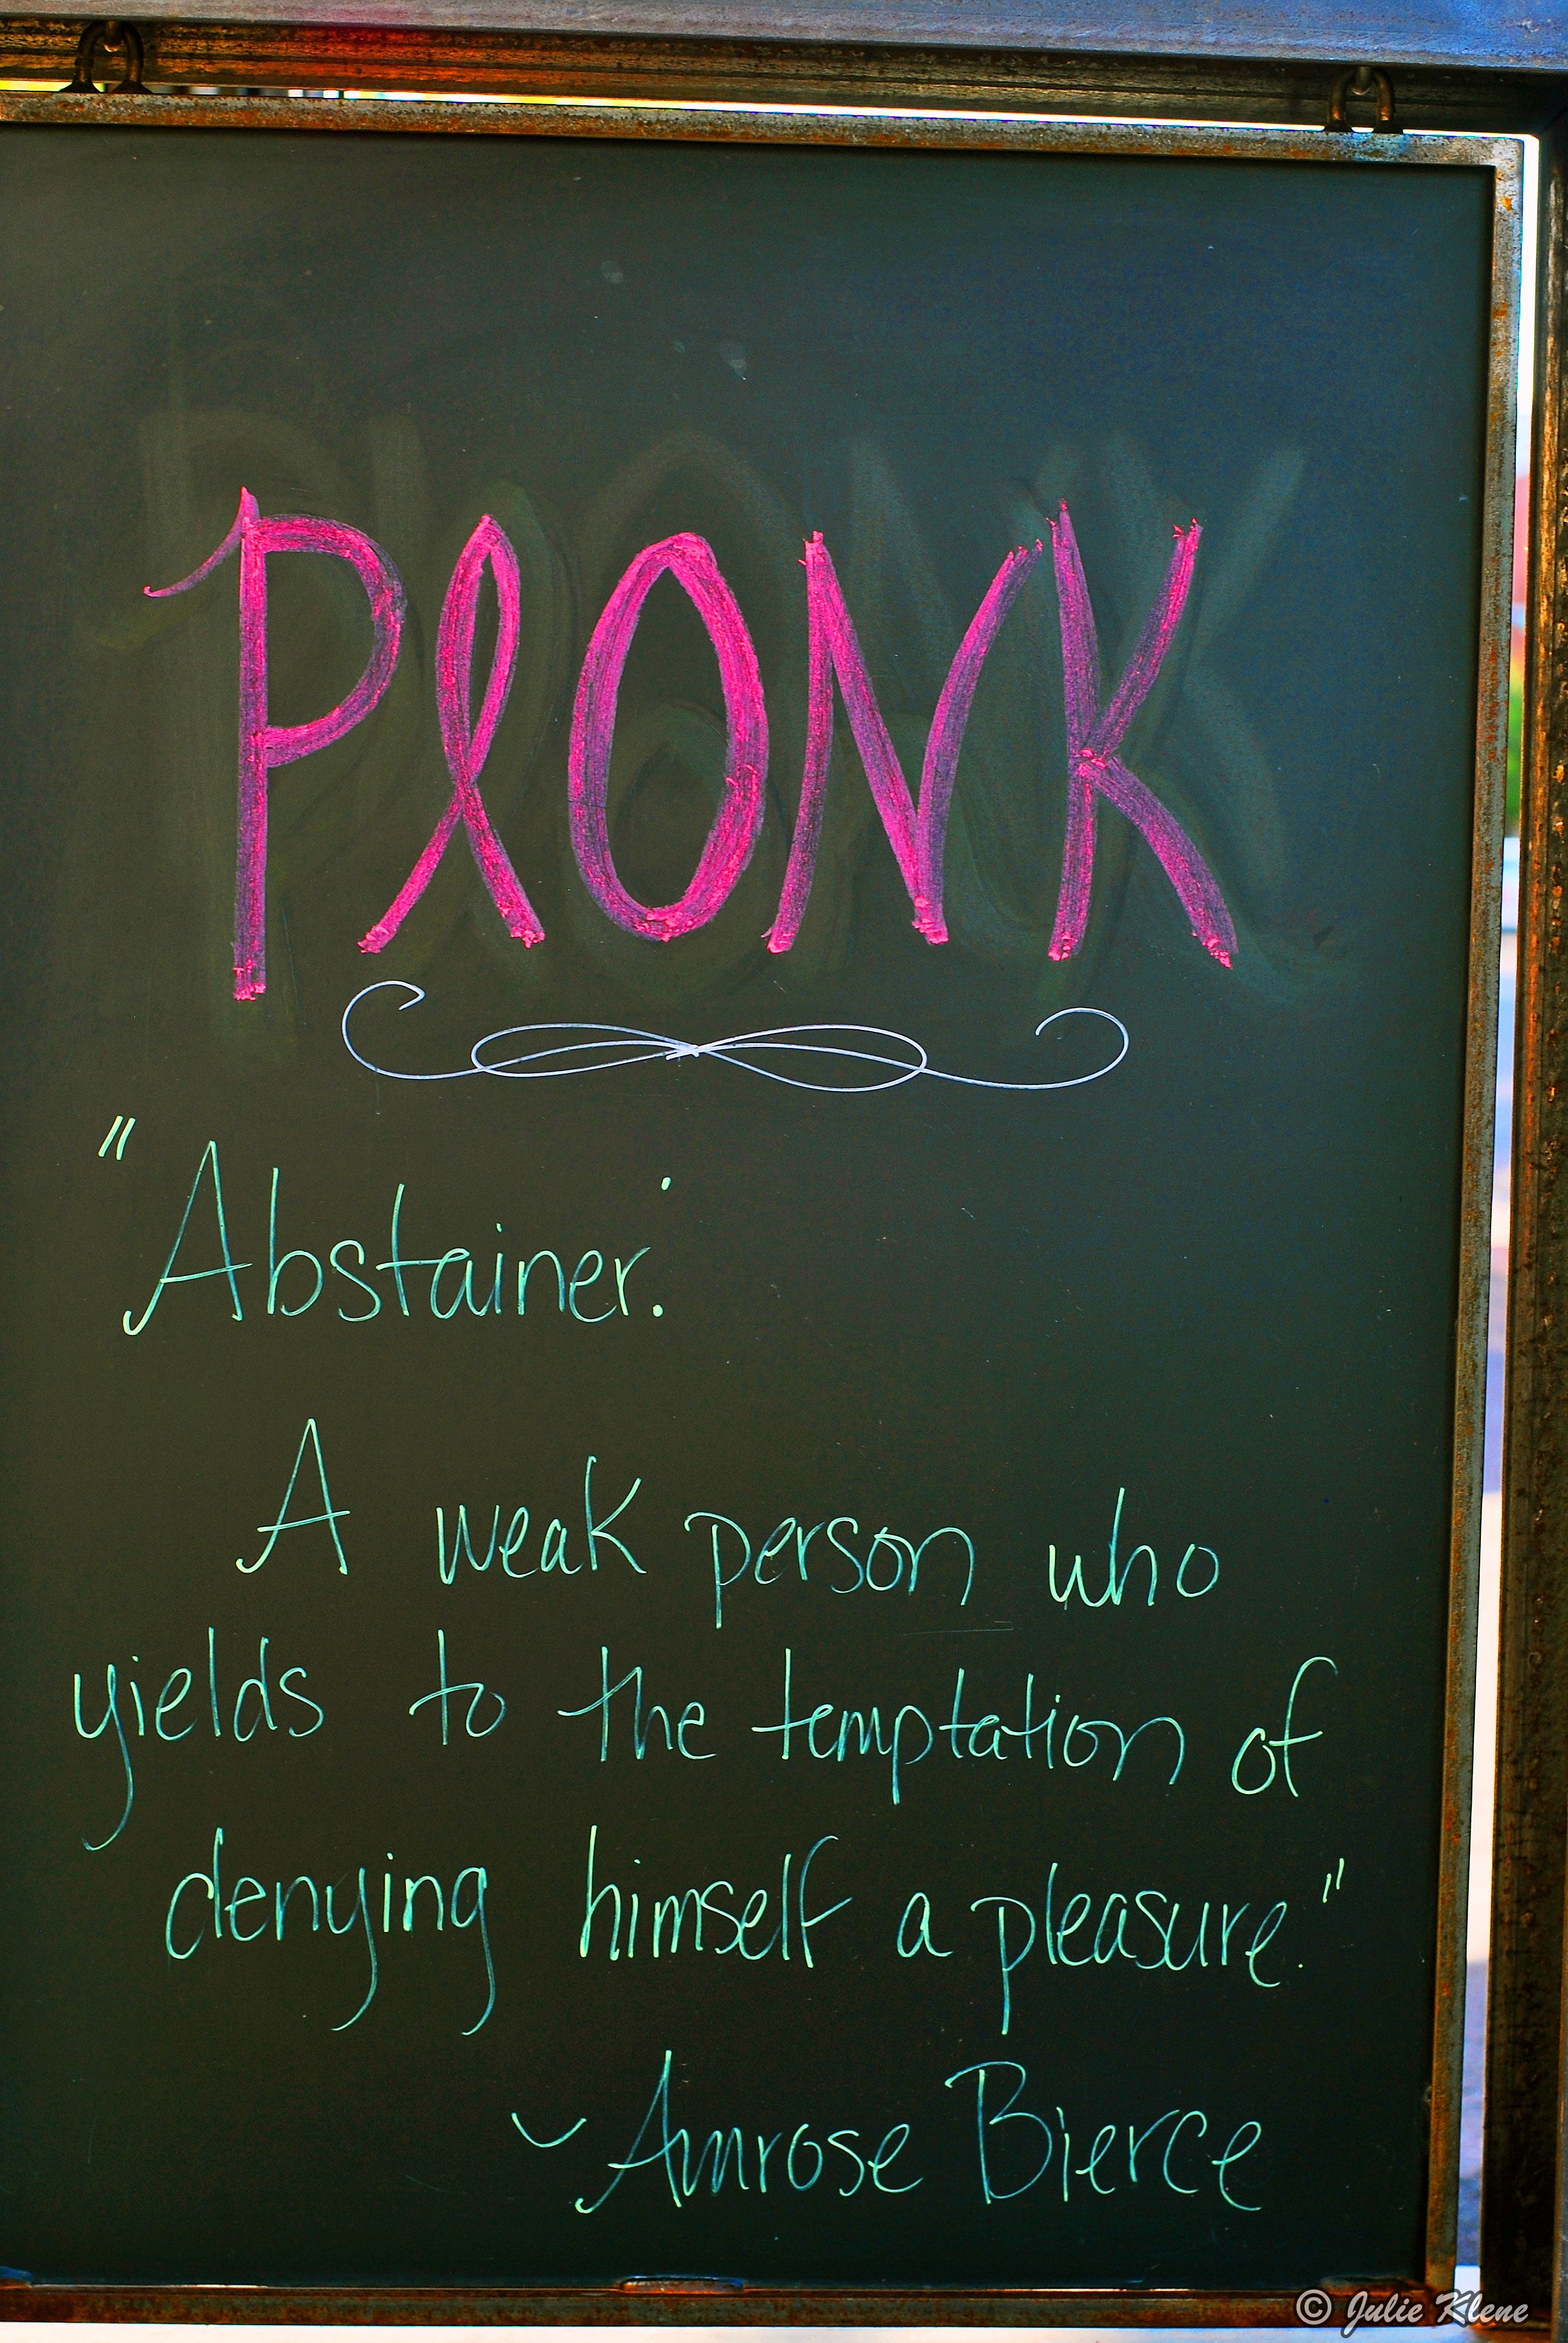 PlONK
"Abstainer:
A weak person who
yields to the temptation of
denying himself a pleasure."
~ Amrose Bierce
© Julie Klene